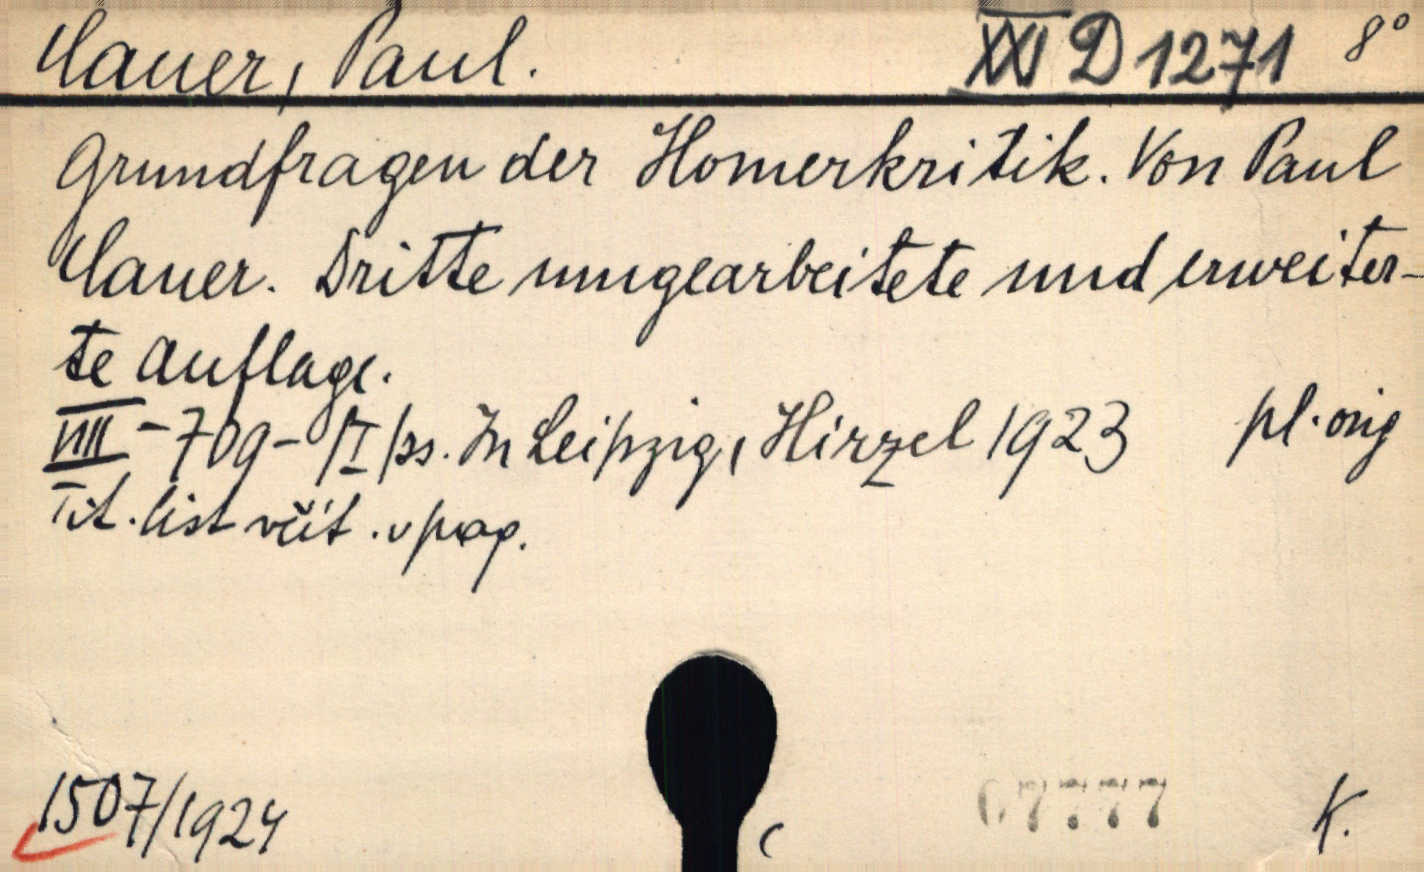 Cauer, Paul. XXI D 1271 8°
Grundfragen der Homerkritik. Von Paul
Cauer. Dritte umgearbeitete und erweiter-
te Auflage.
VIII - 709 - /I/ss. In Leipzig, Hirzel 1923 pl. orig
Tit. list včít. v pag.
1507/1924 67777 K.